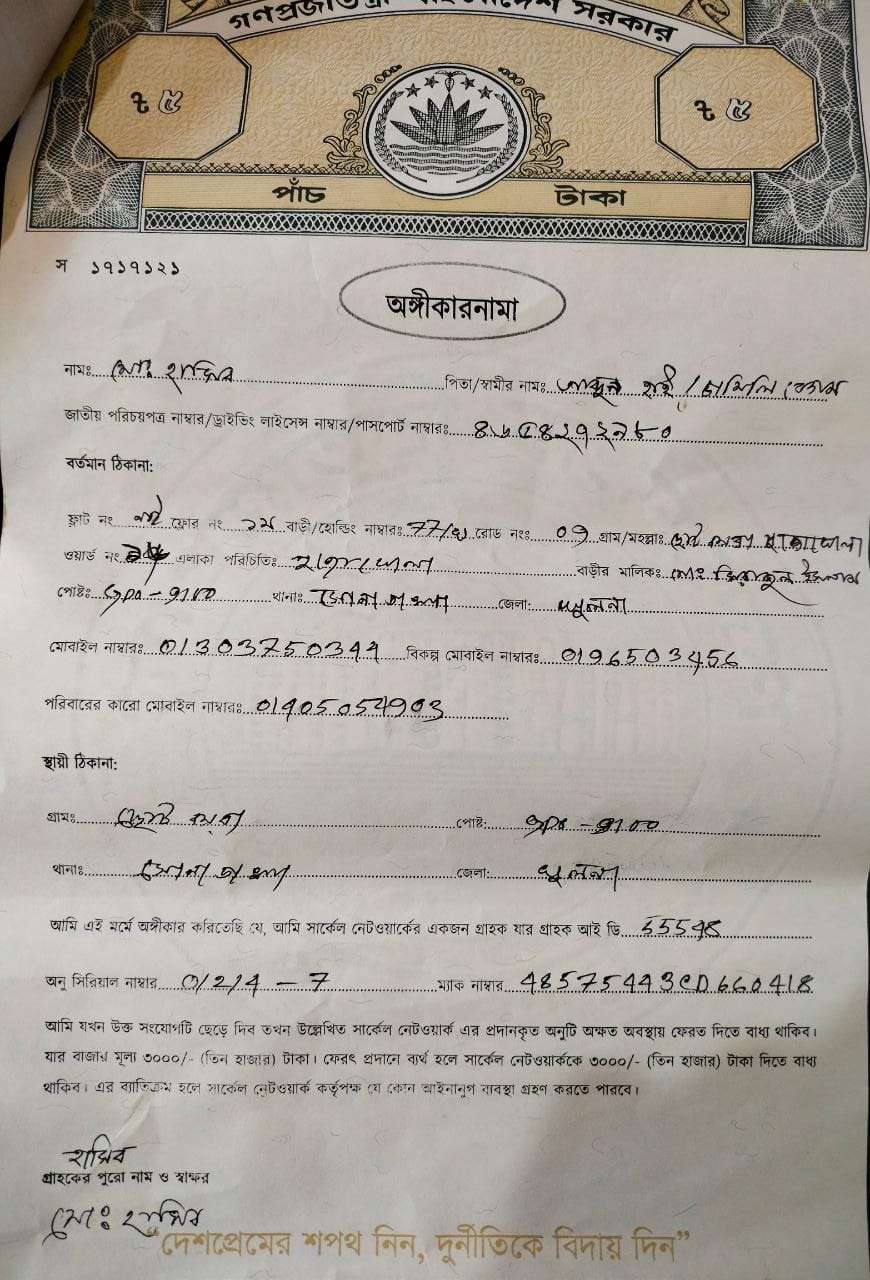 গণপ্রজাতন্ত্রী বাংলাদেশ সরকার
৳ ৫ ৳ ৫
পাঁচ টাকা
স ১৭১৭১২১
অঙ্গীকারনামা
নামঃ মোঃ হাসিব পিতা/স্বামীর নামঃ আব্দুল হাই /
জাতীয় পরিচয়পত্র নাম্বার/ড্রাইভিং লাইসেন্স নাম্বার/পাসপোর্ট নাম্বারঃ
বর্তমান ঠিকানা:
ফ্লাট নং নাই ফ্লোর নং ১ম বাড়ী/হোল্ডিং নাম্বারঃ রোড নংঃ 09 গ্রাম/মহল্লাঃ
ওয়ার্ড নং এলাকা পরিচিতিঃ বাড়ীর মালিকঃ মোঃ
পোষ্টঃ GPO - 9100 থানাঃ সোনাডাঙ্গা জেলা: খুলনা
মোবাইল নাম্বারঃ 01303750344 বিকল্প মোবাইল নাম্বারঃ 0196503456
পরিবারের কারো মোবাইল নাম্বারঃ 01905054903
স্থায়ী ঠিকানা:
গ্রামঃ পোষ্ট: GPO - 9100
থানাঃ সোনাডাঙ্গা জেলা: খুলনা
আমি এই মর্মে অঙ্গীকার করিতেছি যে, আমি সার্কেল নেটওয়ার্কের একজন গ্রাহক যার গ্রাহক আই ডি 55548
অনু সিরিয়াল নাম্বার 0/2/4 - 7 ম্যাক নাম্বার 48575443CD660418
আমি যখন উক্ত সংযোগটি ছেড়ে দিব তখন উল্লেখিত সার্কেল নেটওয়ার্ক এর প্রদানকৃত অনুটি অক্ষত অবস্থায় ফেরত দিতে বাধ্য থাকিব।
যার বাজার মূল্য ৩০০০/- (তিন হাজার) টাকা। ফেরৎ প্রদানে ব্যর্থ হলে সার্কেল নেটওয়ার্ককে ৩০০০/- (তিন হাজার) টাকা দিতে বাধ্য
থাকিব। এর ব্যতিক্রম হলে সার্কেল নেটওয়ার্ক কর্তৃপক্ষ যে কোন আইনানুগ ব্যবস্থা গ্রহণ করতে পারবে।
হাসিব
গ্রাহকের পুরো নাম ও স্বাক্ষর
মোঃ হাসিব
“দেশপ্রেমের শপথ নিন, দুর্নীতিকে বিদায় দিন”